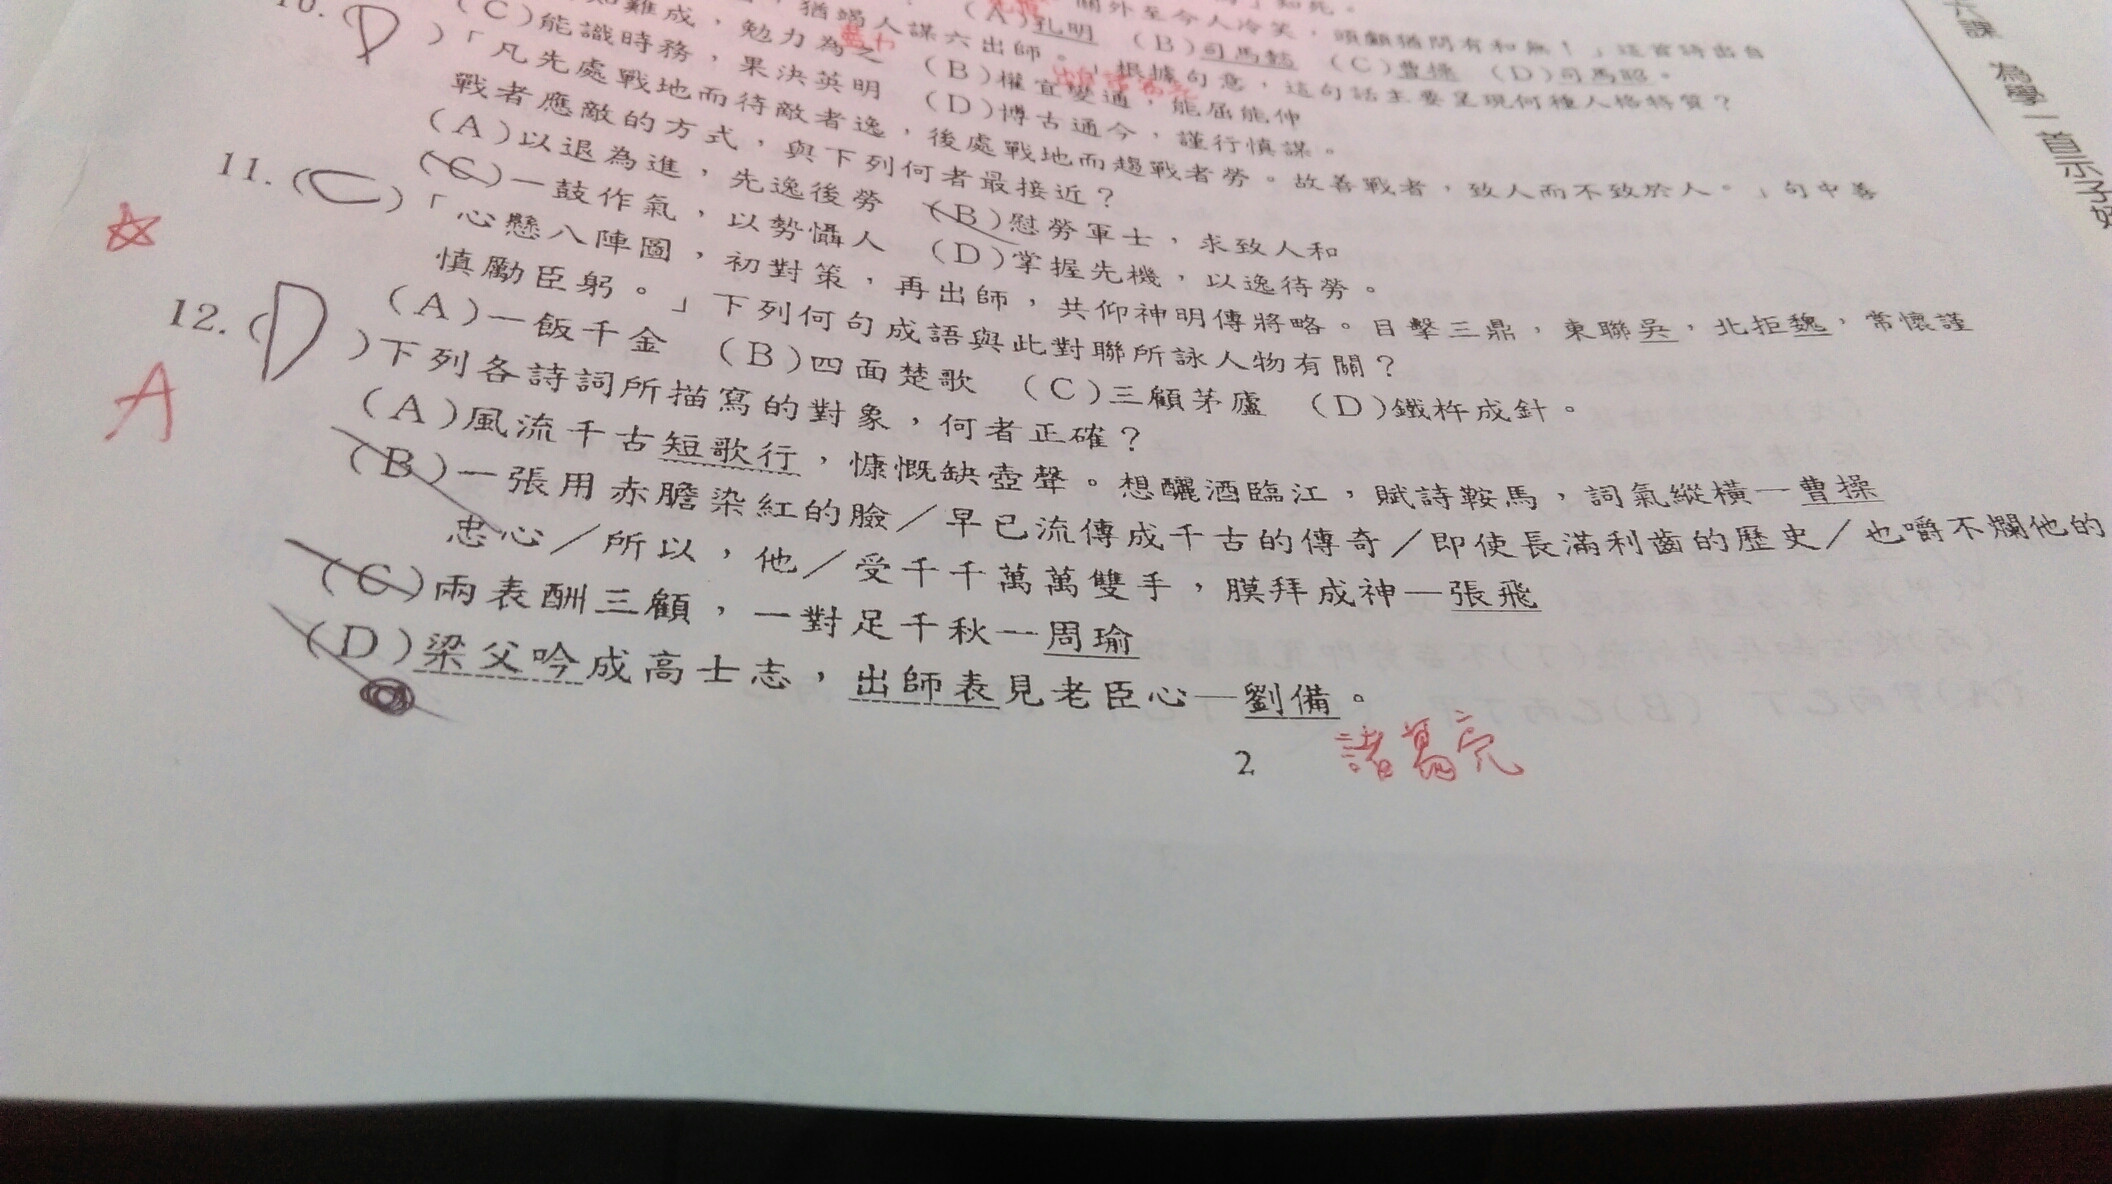 關外至今人冷笑，頭顱猶問有和無！」這首詩出自
(A)孔明 (B)司馬懿 (C)曹操 (D)司馬昭。
難成，勉力為之，猶竭人謀六出師。」根據句意，這句話主要呈現何種人格特質？
(B)權宜變通，能屈能伸
(C)能識時務，果決英明 (D)博古通今，謹行慎謀。
10.(D)「凡先處戰地而待敵者逸，後處戰地而趨戰者勞。故善戰者，致人而不致於人。」句中善
戰者應敵的方式，與下列何者最接近？
(A)以退為進，先逸後勞 (B)慰勞軍士，求致人和
(C)一鼓作氣，以勢懾人 (D)掌握先機，以逸待勞。
11.(C)「心懸八陣圖，初對策，再出師，共仰神明傳將略。目擊三鼎，東聯吳，北拒魏，常懷謹
慎勵臣躬。」下列何句成語與此對聯所詠人物有關？
(A)一飯千金 (B)四面楚歌 (C)三顧茅廬 (D)鐵杵成針。
12.(D)下列各詩詞所描寫的對象，何者正確？
A
(A)風流千古短歌行，慷慨缺壺聲。想釃酒臨江，賦詩鞍馬，詞氣縱橫—曹操
(B)一張用赤膽染紅的臉／早已流傳成千古的傳奇／即使長滿利齒的歷史／也嚼不爛他的
忠心／所以，他／受千千萬萬雙手，膜拜成神—張飛
(C)兩表酬三顧，一對足千秋—周瑜
(D)梁父吟成高士志，出師表見老臣心—劉備。
諸葛亮
2
六課 為學一首示子